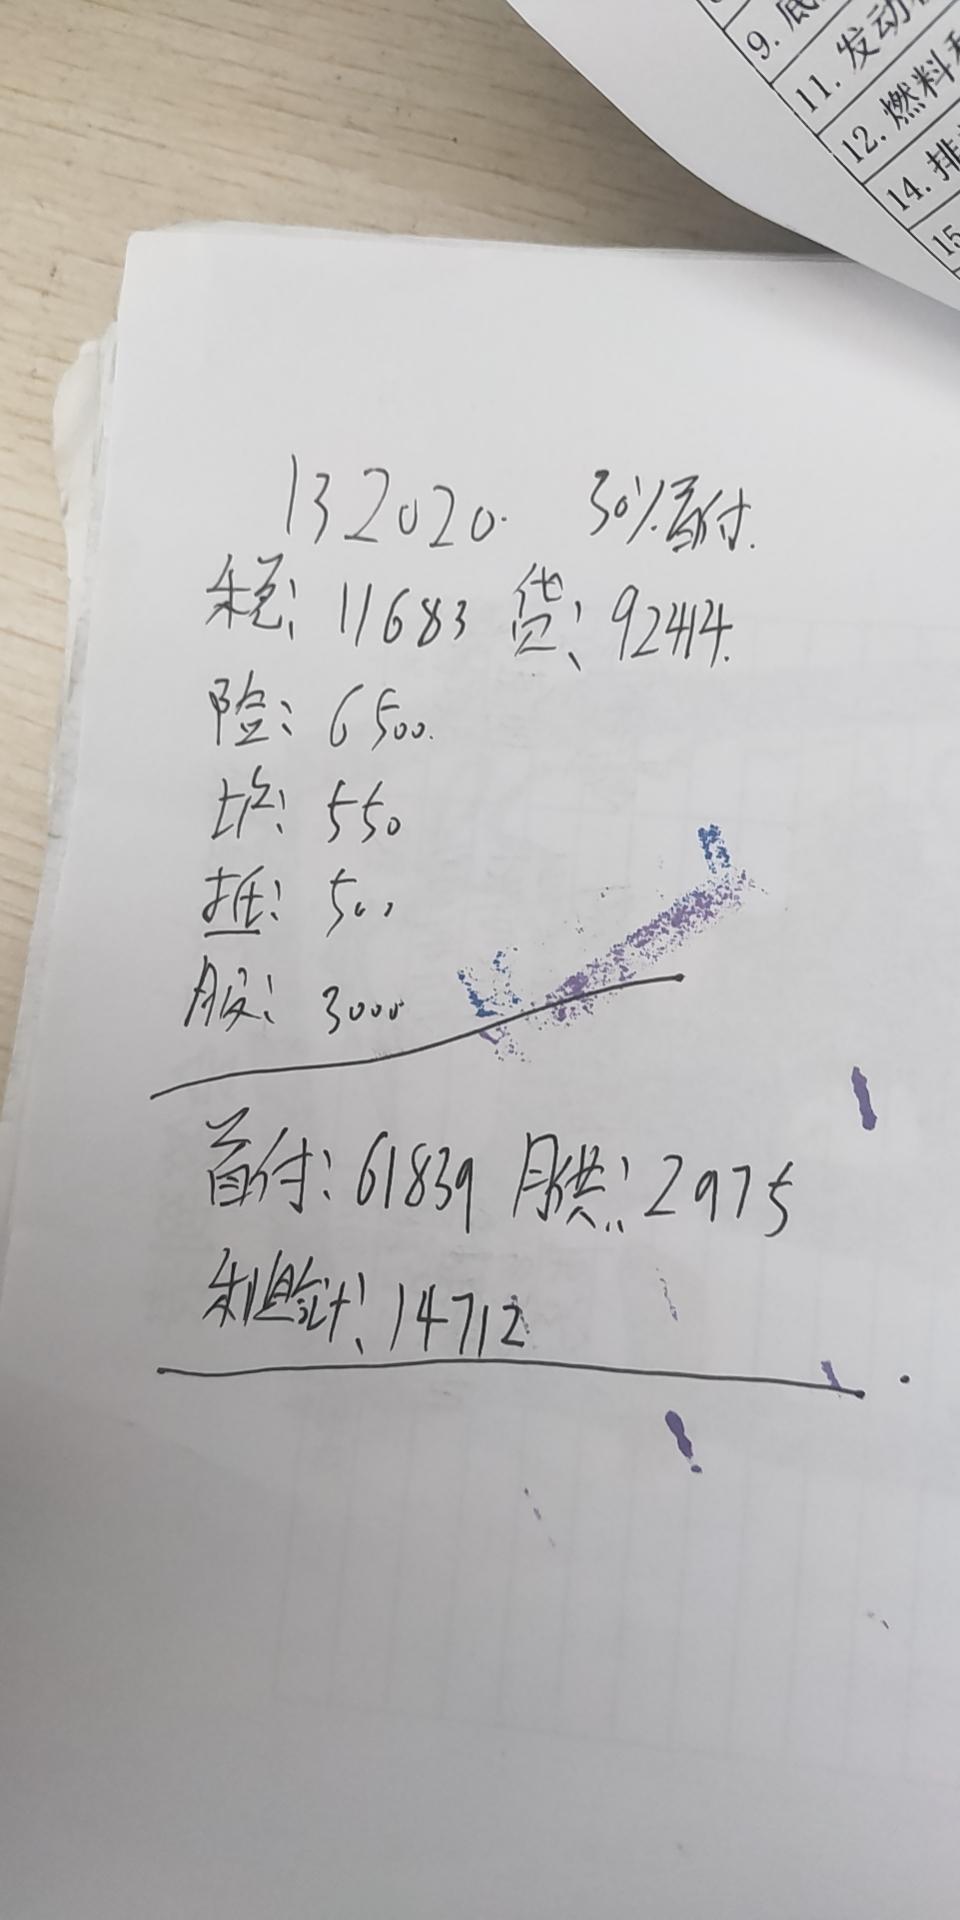 9. 底
11. 发动
12. 燃料
14. 排
15
132020. 30%首付.
税: 11683 贷: 92414.
险: 6500.
上户: 550
抵: 500
服: 3000
首付: 61839 月供: 2975
利息合计: 14712